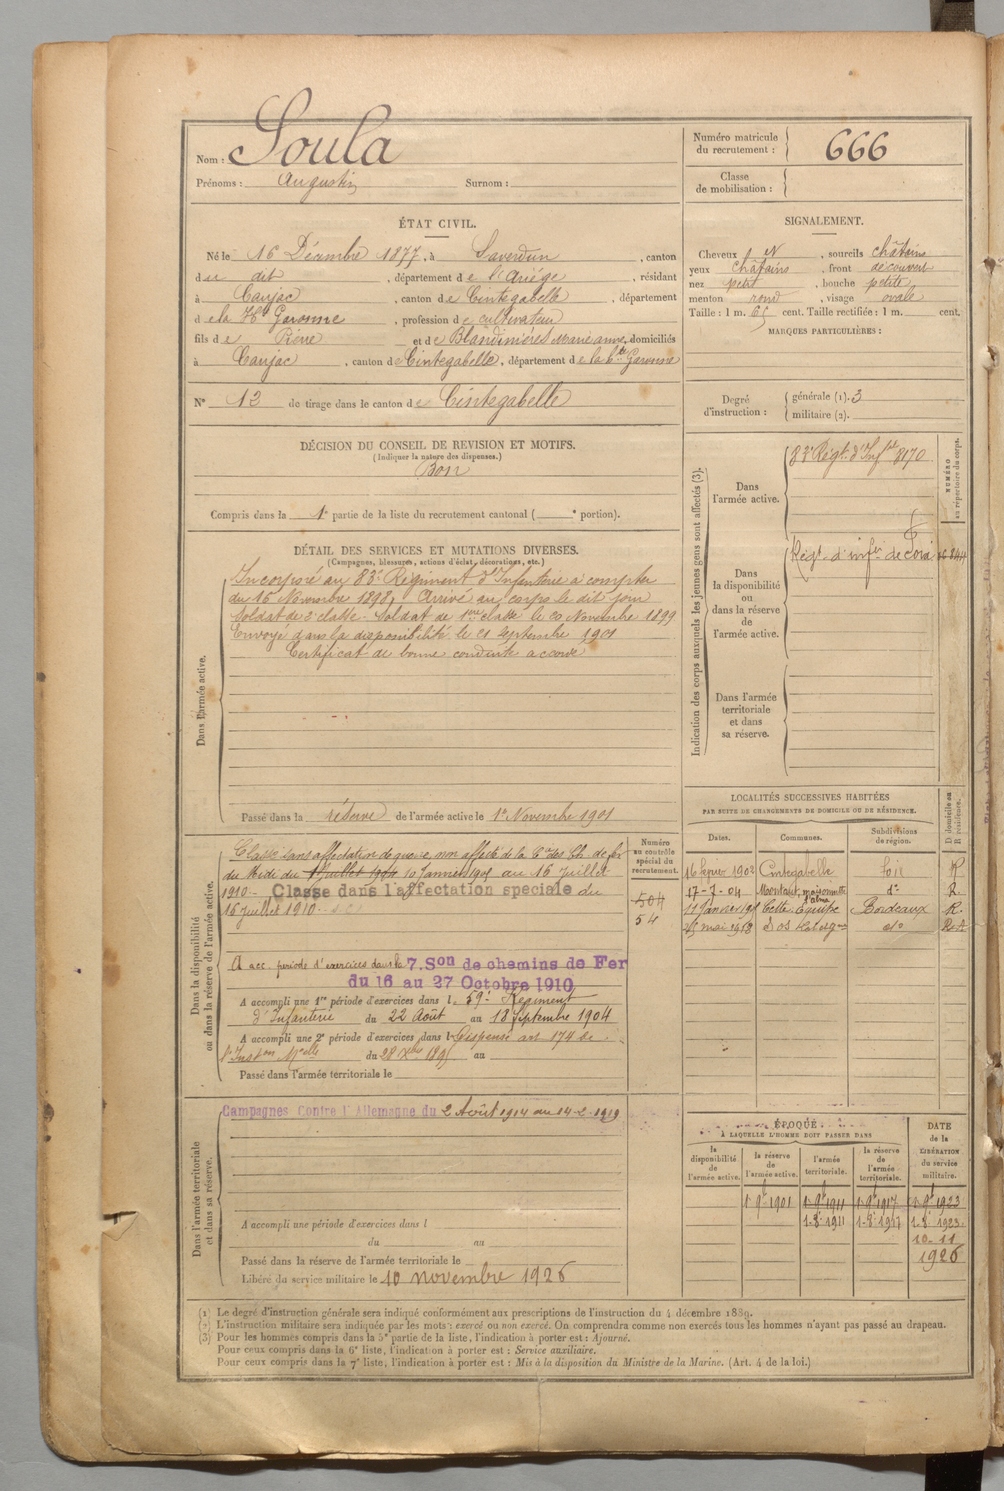 Nom : Soula
Prénoms : Augustin Surnom :
Numéro matricule du recrutement : 666
Classe de mobilisation :
ÉTAT CIVIL.
Né le 16 Décembre 1877, à Saverdun, canton
du dit, département de l'Ariége, résidant
à Caujac, canton de Cintegabelle, département
de la Hte Garonne, profession de cultivateur
fils de Pierre et de Blandinières Marie anne, domiciliés
à Caujac, canton de Cintegabelle, département de la hte Garonne
N° 13 de tirage dans le canton de Cintegabelle
SIGNALEMENT.
Cheveux N, sourcils châtains
yeux châtains, front découvert
nez petit, bouche petite
menton rond, visage ovale
Taille : 1 m. 65 cent. Taille rectifiée : 1 m. cent.
MARQUES PARTICULIÈRES :
Degré d'instruction : générale (1). 3
militaire (2).
DÉCISION DU CONSEIL DE REVISION ET MOTIFS.
(Indiquer la nature des dispenses.)
Bon
Compris dans la 1e partie de la liste du recrutement cantonal ( e portion).
DÉTAIL DES SERVICES ET MUTATIONS DIVERSES.
(Campagnes, blessures, actions d'éclat, décorations, etc.)
Dans l'armée active.
Incorporé au 83e Régiment d'Infanterie à compter
du 16 Novembre 1898, Arrivé au corps le dit jour
soldat de 2e classe. Soldat de 1ère classe le 20 Novembre 1899
Envoyé dans la disponibilité le 21 septembre 1901
Certificat de bonne conduite accordé
Passé dans la réserve de l'armée active le 1er Novembre 1901
Indication des corps auxquels les jeunes gens sont affectés (3).
NUMÉRO au répertoire du corps.
Dans l'armée active.
83e Régt d'Infie 8170
Dans la disponibilité ou dans la réserve de l'armée active.
Régt d'infie de Foix
Dans l'armée territoriale et dans sa réserve.
LOCALITÉS SUCCESSIVES HABITÉES
PAR SUITE DE CHANGEMENTS DE DOMICILE OU DE RÉSIDENCE.
Dates. Communes. Subdivisions de région. D domicile ou R résidence.
16 1902 Cintegabelle Foix R
17-7-04 Montaut, maisonnette do R.
11 Janvier Cette Bordeaux R.
do
Dans la disponibilité ou dans la réserve de l'armée active.
Numéro au contrôle spécial du recrutement.
504
54
Classé sans affectation de guerre, non affecté de la Cie des Ch. de fer
du Midi du 1 Juillet 1904 10 Janvier 1905 au 16 Juillet
1910 - Classe dans l'affectation speciale du
16 juillet 1910
A acc. période d'exercices dans la 7.Son de chemins de Fer
du 16 au 27 Octobre 1910
A accompli une 1re période d'exercices dans l 59e Régiment
d'Infanterie du 22 Août au 18 septembre 1904
A accompli une 2e période d'exercices dans l Dispensé art 174 de
l'Inston Mielle du 28 Xbre 1895 au
Passé dans l'armée territoriale le
Dans l'armée territoriale et dans sa réserve.
Campagnes Contre l'Allemagne du 2 Août 1914 au 14-2-1919
A accompli une période d'exercices dans l
du au
Passé dans la réserve de l'armée territoriale le
Libéré du service militaire le 10 novembre 1926
ÉPOQUE
À LAQUELLE L'HOMME DOIT PASSER DANS
la disponibilité de l'armée active. la réserve de l'armée active. l'armée territoriale. la réserve de l'armée territoriale. DATE de la LIBÉRATION du service militaire.
1-9e 1901 1-9e 1911 1-9e 1917 1-9e 1923
1-8e 1911 1-8e 1917 1-8e 1923
10-11
1926
(1) Le degré d'instruction générale sera indiqué conformément aux prescriptions de l'instruction du 4 décembre 1889.
(2) L'instruction militaire sera indiquée par les mots : exercé ou non exercé. On comprendra comme non exercés tous les hommes n'ayant pas passé au drapeau.
(3) Pour les hommes compris dans la 5e partie de la liste, l'indication à porter est : Ajourné.
Pour ceux compris dans la 6e liste, l'indication à porter est : Service auxiliaire.
Pour ceux compris dans la 7e liste, l'indication à porter est : Mis à la disposition du Ministre de la Marine. (Art. 4 de la loi.)